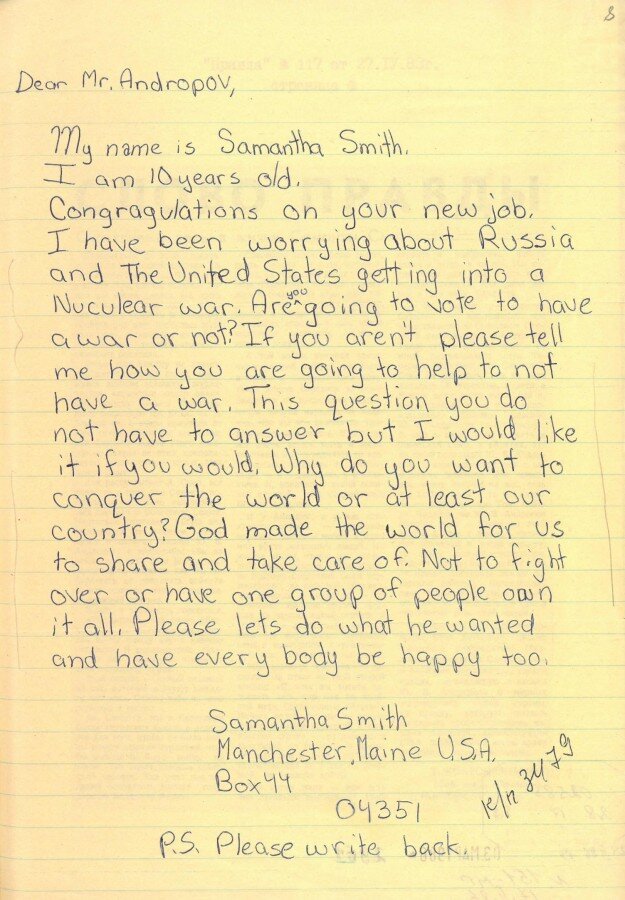 8
Dear Mr. Andropov,
My name is Samantha Smith.
I am 10 years old.
Congragulations on your new job.
I have been worrying about Russia
and The United States getting into a
Nuculear war. Are you going to vote to have
a war or not? If you aren't please tell
me how you are going to help to not
have a war. This question you do
not have to answer but I would like
it if you would. Why do you want to
conquer the world or at least our
country? God made the world for us
to share and take care of. Not to fight
over or have one group of people own
it all. Please lets do what he wanted
and have every body be happy too.
Samantha Smith
Manchester, Maine U.S.A.
Box 44
04351
3479
P.S. Please write back.